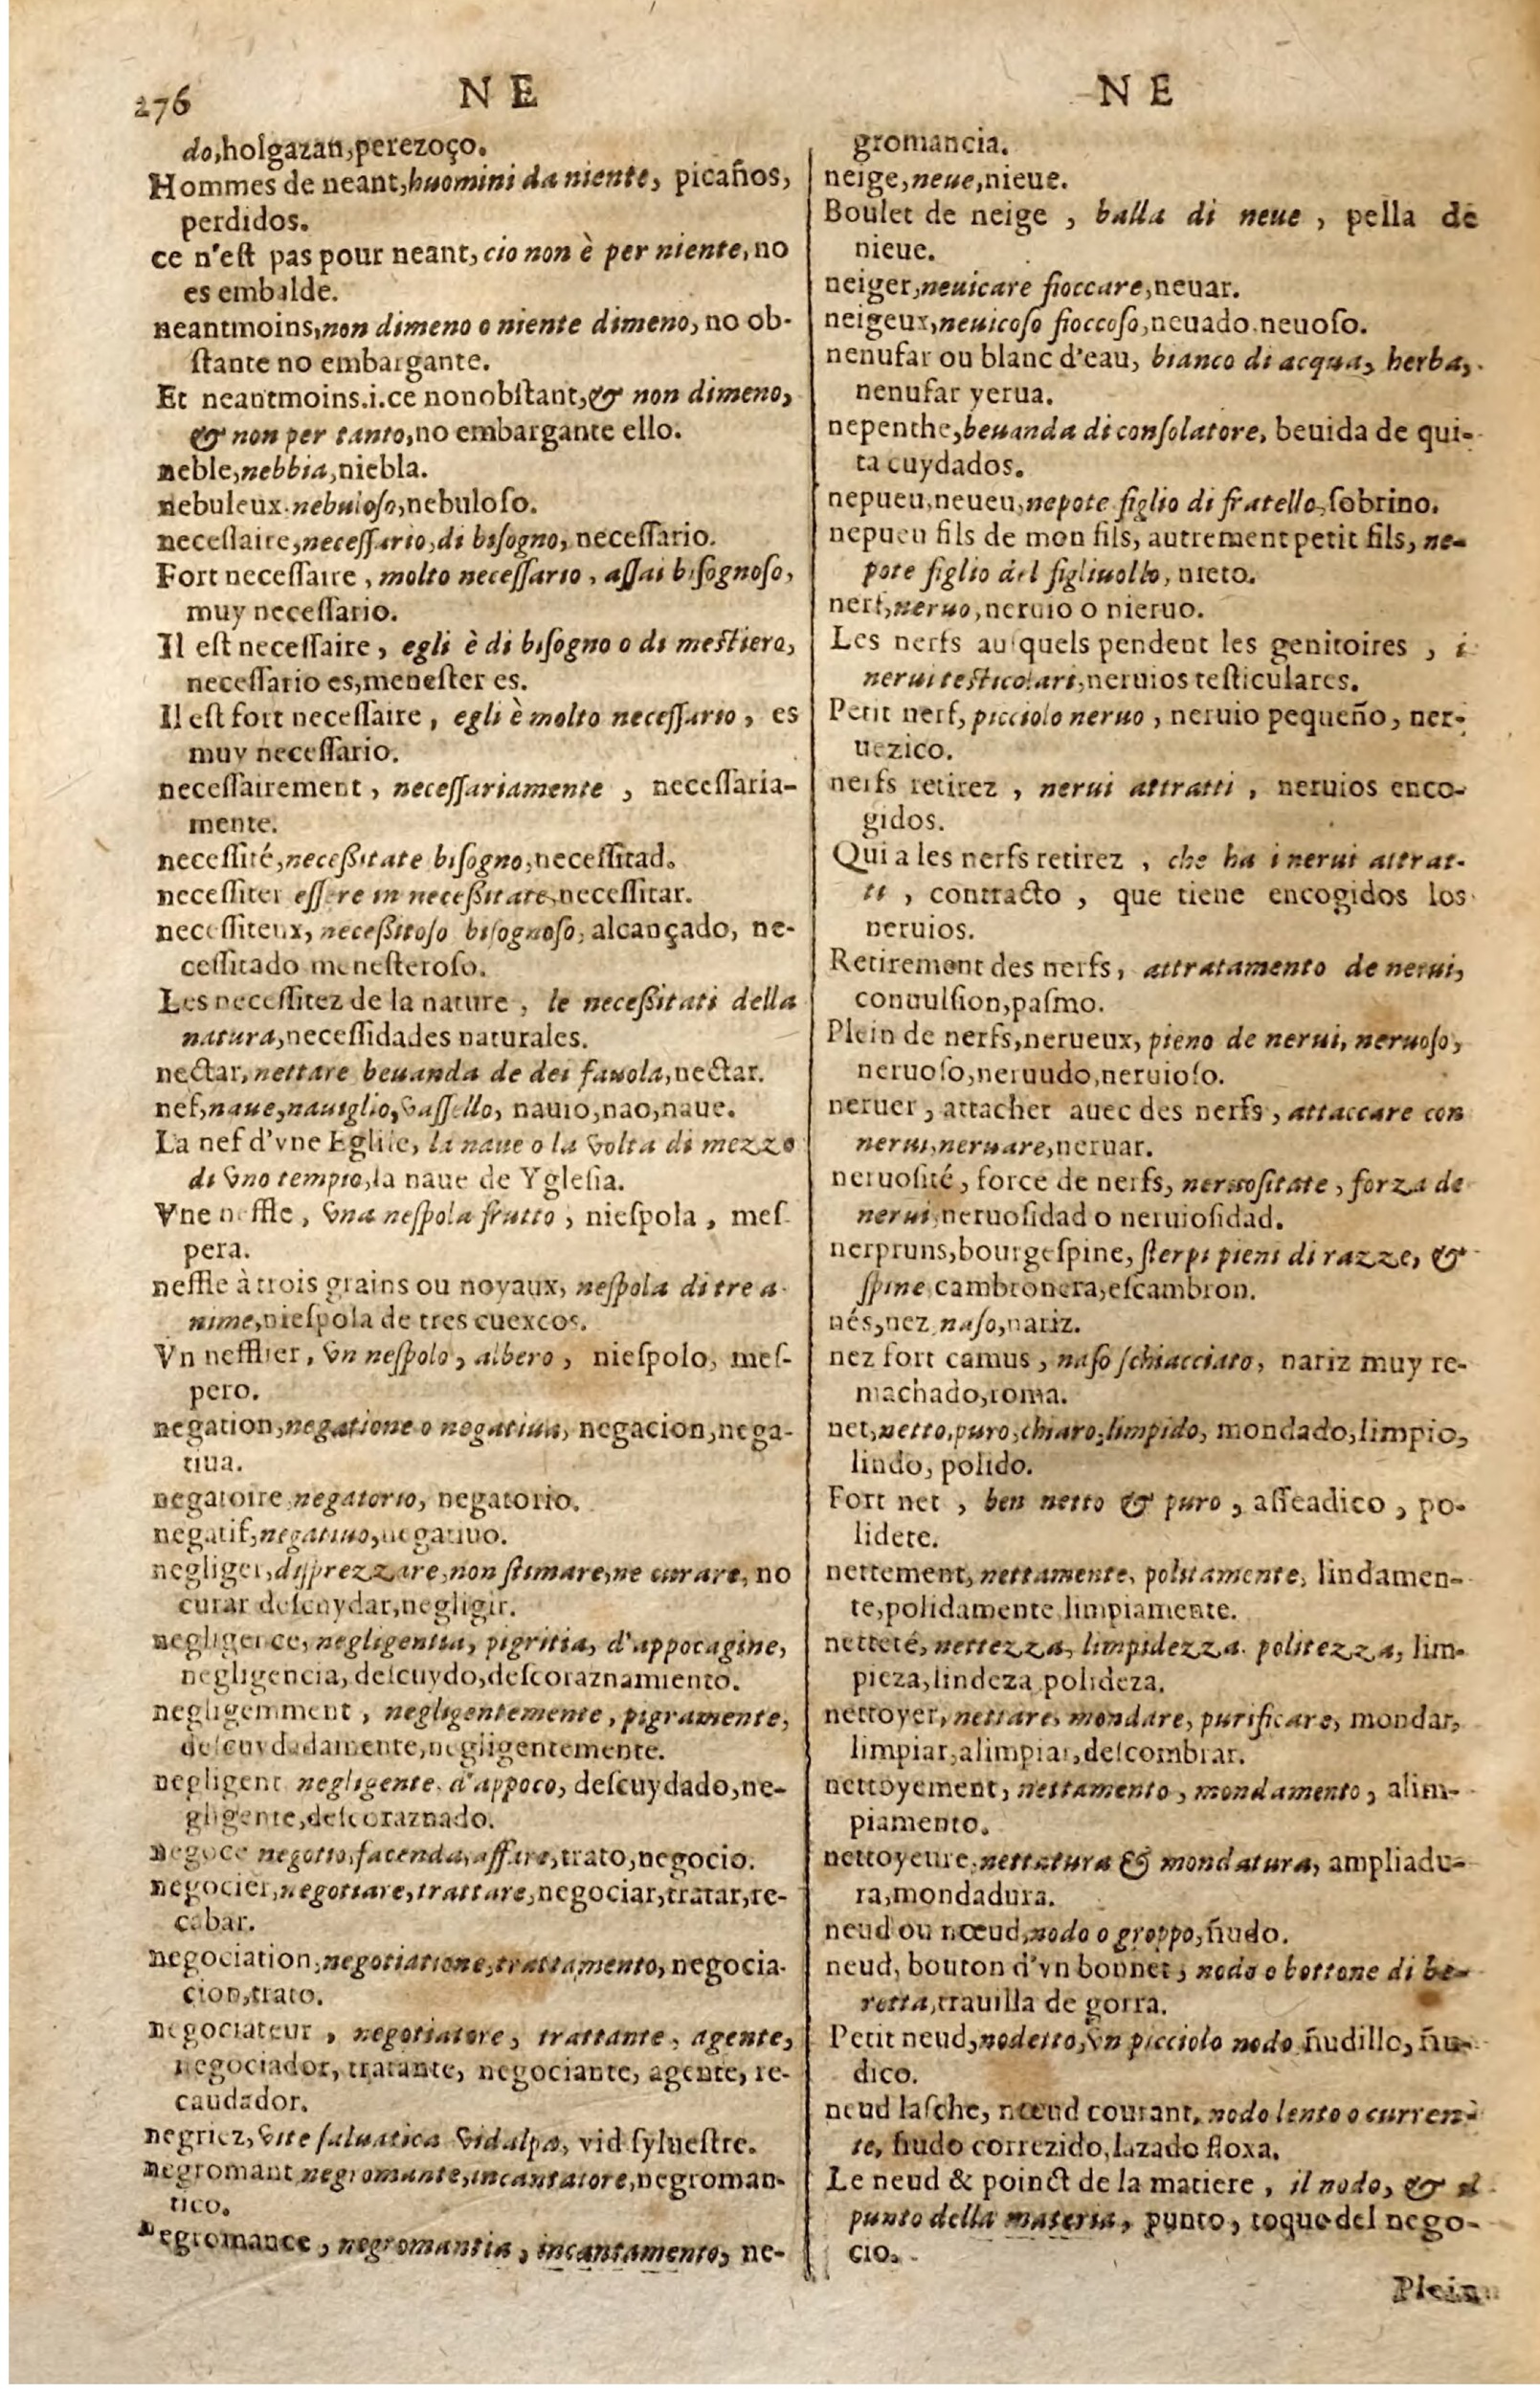 276
N E
N E
do,holgazan,perezoço.
Hommes de neant,huomini da niente, picaños,
perdidos.
ce n'eſt pas pour neant,cio non è per niente,no
es embalde.
neantmoins,non dimeno o niente dimeno,no ob-
ſtante no embargante.
Et neantmoins.i.ce nonobſtant,& non dimeno,
& non per tanto,no embargante ello.
neble,nebbia,niebla.
nebuleux.nebuloſo,nebuloſo.
neceſſaire,neceſſario,di biſogno,neceſſario.
Fort neceſſaire, molto neceſſario, aſſai biſognoſo,
muy neceſſario.
Il eſt neceſſaire, egli è di biſogno o di meſtiero,
neceſſario es,meneſter es.
Il eſt fort neceſſaire, egli è molto neceſſario, es
muy neceſſario.
neceſſairement, neceſſariamente, neceſſaria-
mente.
neceſſité,neceßitate biſogno,neceſſitad.
neceſſiter eſſere in neceßitate,neceſſitar.
neceſſiteux, neceßitoſo biſognoſo, alcançado, ne-
ceſſitado meneſteroſo.
Les neceſſitez de la nature, le neceßitati della
natura,neceſſidades naturales.
nectar,nettare beuanda de dei fauola,nectar.
nef,naue,nauiglio,vaſſello, nauio,nao,naue.
La nef d'vne Egliſe, la naue o la volta di mezzo
di vno tempio,la naue de Ygleſia.
Vne neffle, vna neſpola frutto, nieſpola, meſ-
pera.
neffle à trois grains ou noyaux, neſpola di tre a-
nime,nieſpola de tres cuexcos.
Vn nefflier, vn neſpolo, albero, nieſpolo, meſ-
pero.
negation,negatione o negatiua, negacion,nega-
tiua.
negatoire negatorio, negatorio.
negatif,negatiuo,negatiuo.
negliger,diſprezzare,non ſtimare,ne curare, no
curar deſcuydar,negligir.
negligence, negligentia, pigritia, d'appocagine,
negligencia, deſcuydo,deſcoraznamiento.
negligemment, negligentemente, pigramente,
deſcuydadamente,negligentemente.
negligent negligente. d'appoco, deſcuydado,ne-
gligente,deſcoraznado.
negoce negotio,facenda,affare,trato,negocio.
negocier,negotiare,trattare,negociar,tratar,re-
cabar.
negociation,negotiatione,trattamento,negocia-
cion,trato.
negociateur, negotiatore, trattante, agente,
negociador, tratante, negociante, agente, re-
caudador.
negriez,vite ſaluatica vidalpa, vid ſylueſtre.
negromant negromante,incantatore,negroman-
tico.
negromance, negromantia, incantamento, ne-
gromancia.
neige,neue,nieue.
Boulet de neige, balla di neue, pella de
nieue.
neiger,neuicare fioccare,neuar.
neigeux,neuicoſo fioccoſo,neuado.neuoſo.
nenufar ou blanc d'eau, bianco di acqua, herba,
nenufar yerua.
nepenthe,beuanda di conſolatore, beuida de qui-
ta cuydados.
nepueu,neueu,nepote figlio di fratello,ſobrino.
nepueu fils de mon fils, autrement petit fils, ne-
pote figlio del figliuollo, nieto.
nerf,neruo,neruio o nieruo.
Les nerfs auſquels pendent les genitoires, i
nerui teſticolari,neruios teſticulares.
Petit nerf, picciolo neruo, neruio pequeño, ner-
uezico.
nerfs retirez, nerui attratti, neruios enco-
gidos.
Qui a les nerfs retirez, che ha i nerui attrat-
ti, contracto, que tiene encogidos los
neruios.
Retirement des nerfs, attratamento de nerui,
conuulſion,paſmo.
Plein de nerfs,nerueux, pieno de nerui, neruoſo,
neruoſo,neruudo,neruioſo.
neruer, attacher auec des nerfs, attaccare con
nerui,neruare,neruar.
neruoſité, force de nerfs, neruoſitate, forza de
nerui,neruoſidad o neruioſidad.
nerpruns,bourgeſpine, ſterpi pieni di razze, &
ſpine,cambronera,eſcambron.
nés,nez,naſo,nariz.
nez fort camus, naſo ſchiacciato, nariz muy re-
machado,roma.
net,netto,puro,chiaro,limpido, mondado,limpio,
lindo, polido.
Fort net, ben netto & puro, aſſeadico, po-
lidete.
nettement, nettamente, politamente, lindamen-
te,polidamente limpiamente.
netteté, nettezza, limpidezza. politezza, lim-
pieza,lindeza polideza.
nettoyer, nettare, mondare, purificare, mondar,
limpiar,alimpiar,deſcombrar.
nettoyement, nettamento, mondamento, alim-
piamento.
nettoyeure,nettatura & mondatura, ampliadu-
ra,mondadura.
neud ou nœud,nodo o groppo,ñudo.
neud, bouton d'vn bonnet, nodo o bottone di be-
retta,trauilla de gorra.
Petit neud,nodetto,vn picciolo nodo ñudillo, ñu-
dico.
neud laſche, nœud courant, nodo lento o curren-
te, ñudo correzido,lazado floxa.
Le neud & poinct de la matiere, il nodo, & il
punto della materia, punto, toque del nego-
cio.
Plein